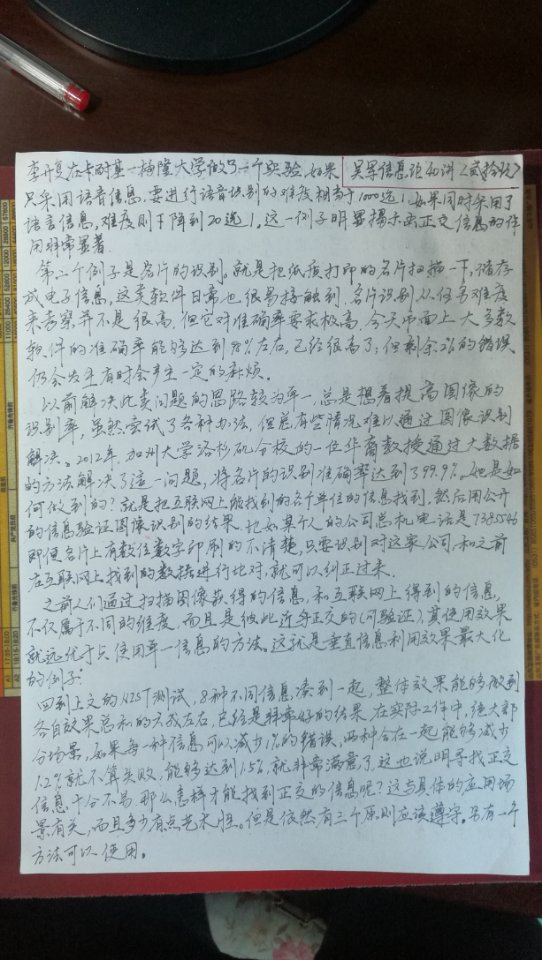 李开复在卡耐基一梅隆大学做了一个实验,如果
吴军信息论40讲〈贰拾玖〉
只采用语音信息,要进行语音识别的难度相当于1000选1,如果同时采用了
语言信息,难度则下降到20选1。这一例子明显揭示出正交信息的作
用非常显著.
第二个例子是名片的识别。就是把纸质打印的名片扫描一下,储存
成电子信息,这类软件日常也很易接触到.名片识别从任务难度
来考察并不是很高.但它对准确率要求极高,今天市面上大多数
软件的准确率能够达到98%左右,已经很高了;但剩余2%的错误
仍会发生有时会产生一定的麻烦.
以前解决此类问题的思路较为单一,总是想着提高图像的
识别率,虽然尝试了各种办法,但总有些情况难以通过图像识别
解决。2012年,加州大学洛杉矶分校的一位华裔教授通过大数据
的方法解决了這一问题,将名片的识别准确率达到了99.9%。她是如
何做到的?就是把互联网上能找到的各个单位的信息找到.然后用公开
的信息验证图像识别的结果.比如某个人的公司总机电话是7385546
即便名片上有数位数字印刷的不清楚,只要识别对这家公司,和之前
在互联网上找到的数据进行比对,就可以纠正过来.
之前人们通过扫描图像获得的信息,和互联网上得到的信息,
不仅属于不同的维度,而且是彼此近乎正交的(可验证),其使用效果
就远优于只使用单一信息的方法。这就是垂直信息利用效果最大化
的例子.
回到上文的NIST测试,8种不同信息凑到一起,整体效果能够做到
各自效果总和的六成左右,已经是非常好的结果.在实际工作中,绝大部
分场景,如果每一种信息可以减少1%的错误,两种合在一起能够减少
1.2%就不算失败,能够达到1.5%,就非常满意了.这也说明寻找正交
信息十分不易.那么怎样才能找到正交的信息呢?这与具体的应用场
景有关,而且多少有点艺术性。但是依然有三个原则应该遵守.另有一个
方法可以使用。